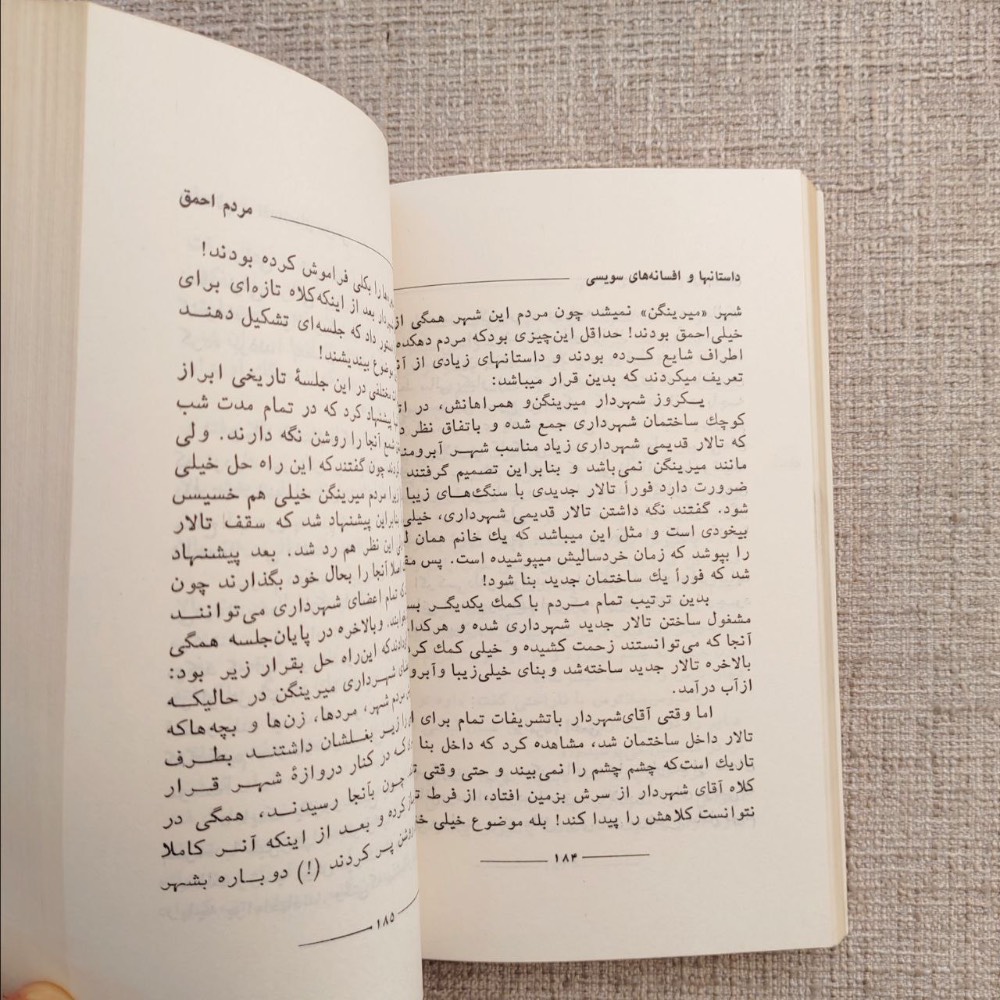 داستانها و افسانه‌های سویسی
شهر «میرینگن» نمیشد چون مردم این شهر همگی از
خیلی‌احمق بودند! حداقل این‌چیزی بودکه مردم دهکده
اطراف شایع کرده بودند و داستانهای زیادی از آن
تعریف میکردند که بدین قرار میباشد:
یکروز شهردار میرینگن‌و همراهانش، در
کوچك ساختمان شهرداری جمع شده و باتفاق نظر
که تالار قدیمی شهرداری زیاد مناسب شهر
مانند میرینگن نمی‌باشد و بنابراین تصمیم گرفتند
ضرورت دارد فوراً تالار جدیدی با سنگ‌های زیبا
شود. گفتند نگه داشتن تالار قدیمی شهرداری، خیلی
بیخودی است و مثل این میباشد که یك خانم همان
را بپوشد که زمان خردسالیش میپوشیده است. پس
شد که فوراً یك ساختمان جدید بنا شود!
بدین ترتیب تمام مردم با کمك یکدیگر
مشغول ساختن تالار جدید شهرداری شده و
آنجا که می‌توانستند زحمت کشیده و خیلی کمك
بالاخره تالار جدید ساخته‌شد وبنای خیلی‌زیبا
ازآب درآمد.
اما وقتی آقای‌شهردار باتشریفات تمام برای
تالار داخل ساختمان شد، مشاهده کرد که داخل بنا
تاریك است‌که چشم چشم را نمی‌بیند و حتی وقتی
کلاه آقای شهردار از سرش بزمین افتاد، از فرط
نتوانست کلاهش را پیدا کند! بله موضوع خیلی
۱۸۴
مردم احمق
را بکلی فراموش کرده بودند!
بعد از اینکه‌کلاه تازه‌ای برای
داد که جلسه‌ای تشکیل دهند
بیندیشند!
مختلفی در این جلسهٔ تاریخی ابراز
پیشنهاد کرد که در تمام مدت شب
شمع آنجا را روشن نگه دارند. ولی
چون گفتندکه این راه حل خیلی
زیرا مردم میرینگن خیلی هم خسیس
این پیشنهاد شد که سقف تالار
این نظر هم رد شد. بعد پیشنهاد
آنجا را بحال خود بگذارند چون
تمام اعضای شهرداری می‌توانند
وبالاخره در پایان‌جلسه همگی
که این‌راه حل بقرار زیر بود:
شهرداری میرینگن در حالیکه
مردم شهر، مردها، زن‌ها و بچه‌هاکه
زیر بغلشان داشتند بطرف
در کنار دروازهٔ شهر قرار
چون بآنجا رسیدند، همگی در
کرده و بعد از اینکه آنر کاملا
پر کردند (!) دوباره بشهر
۱۸۵